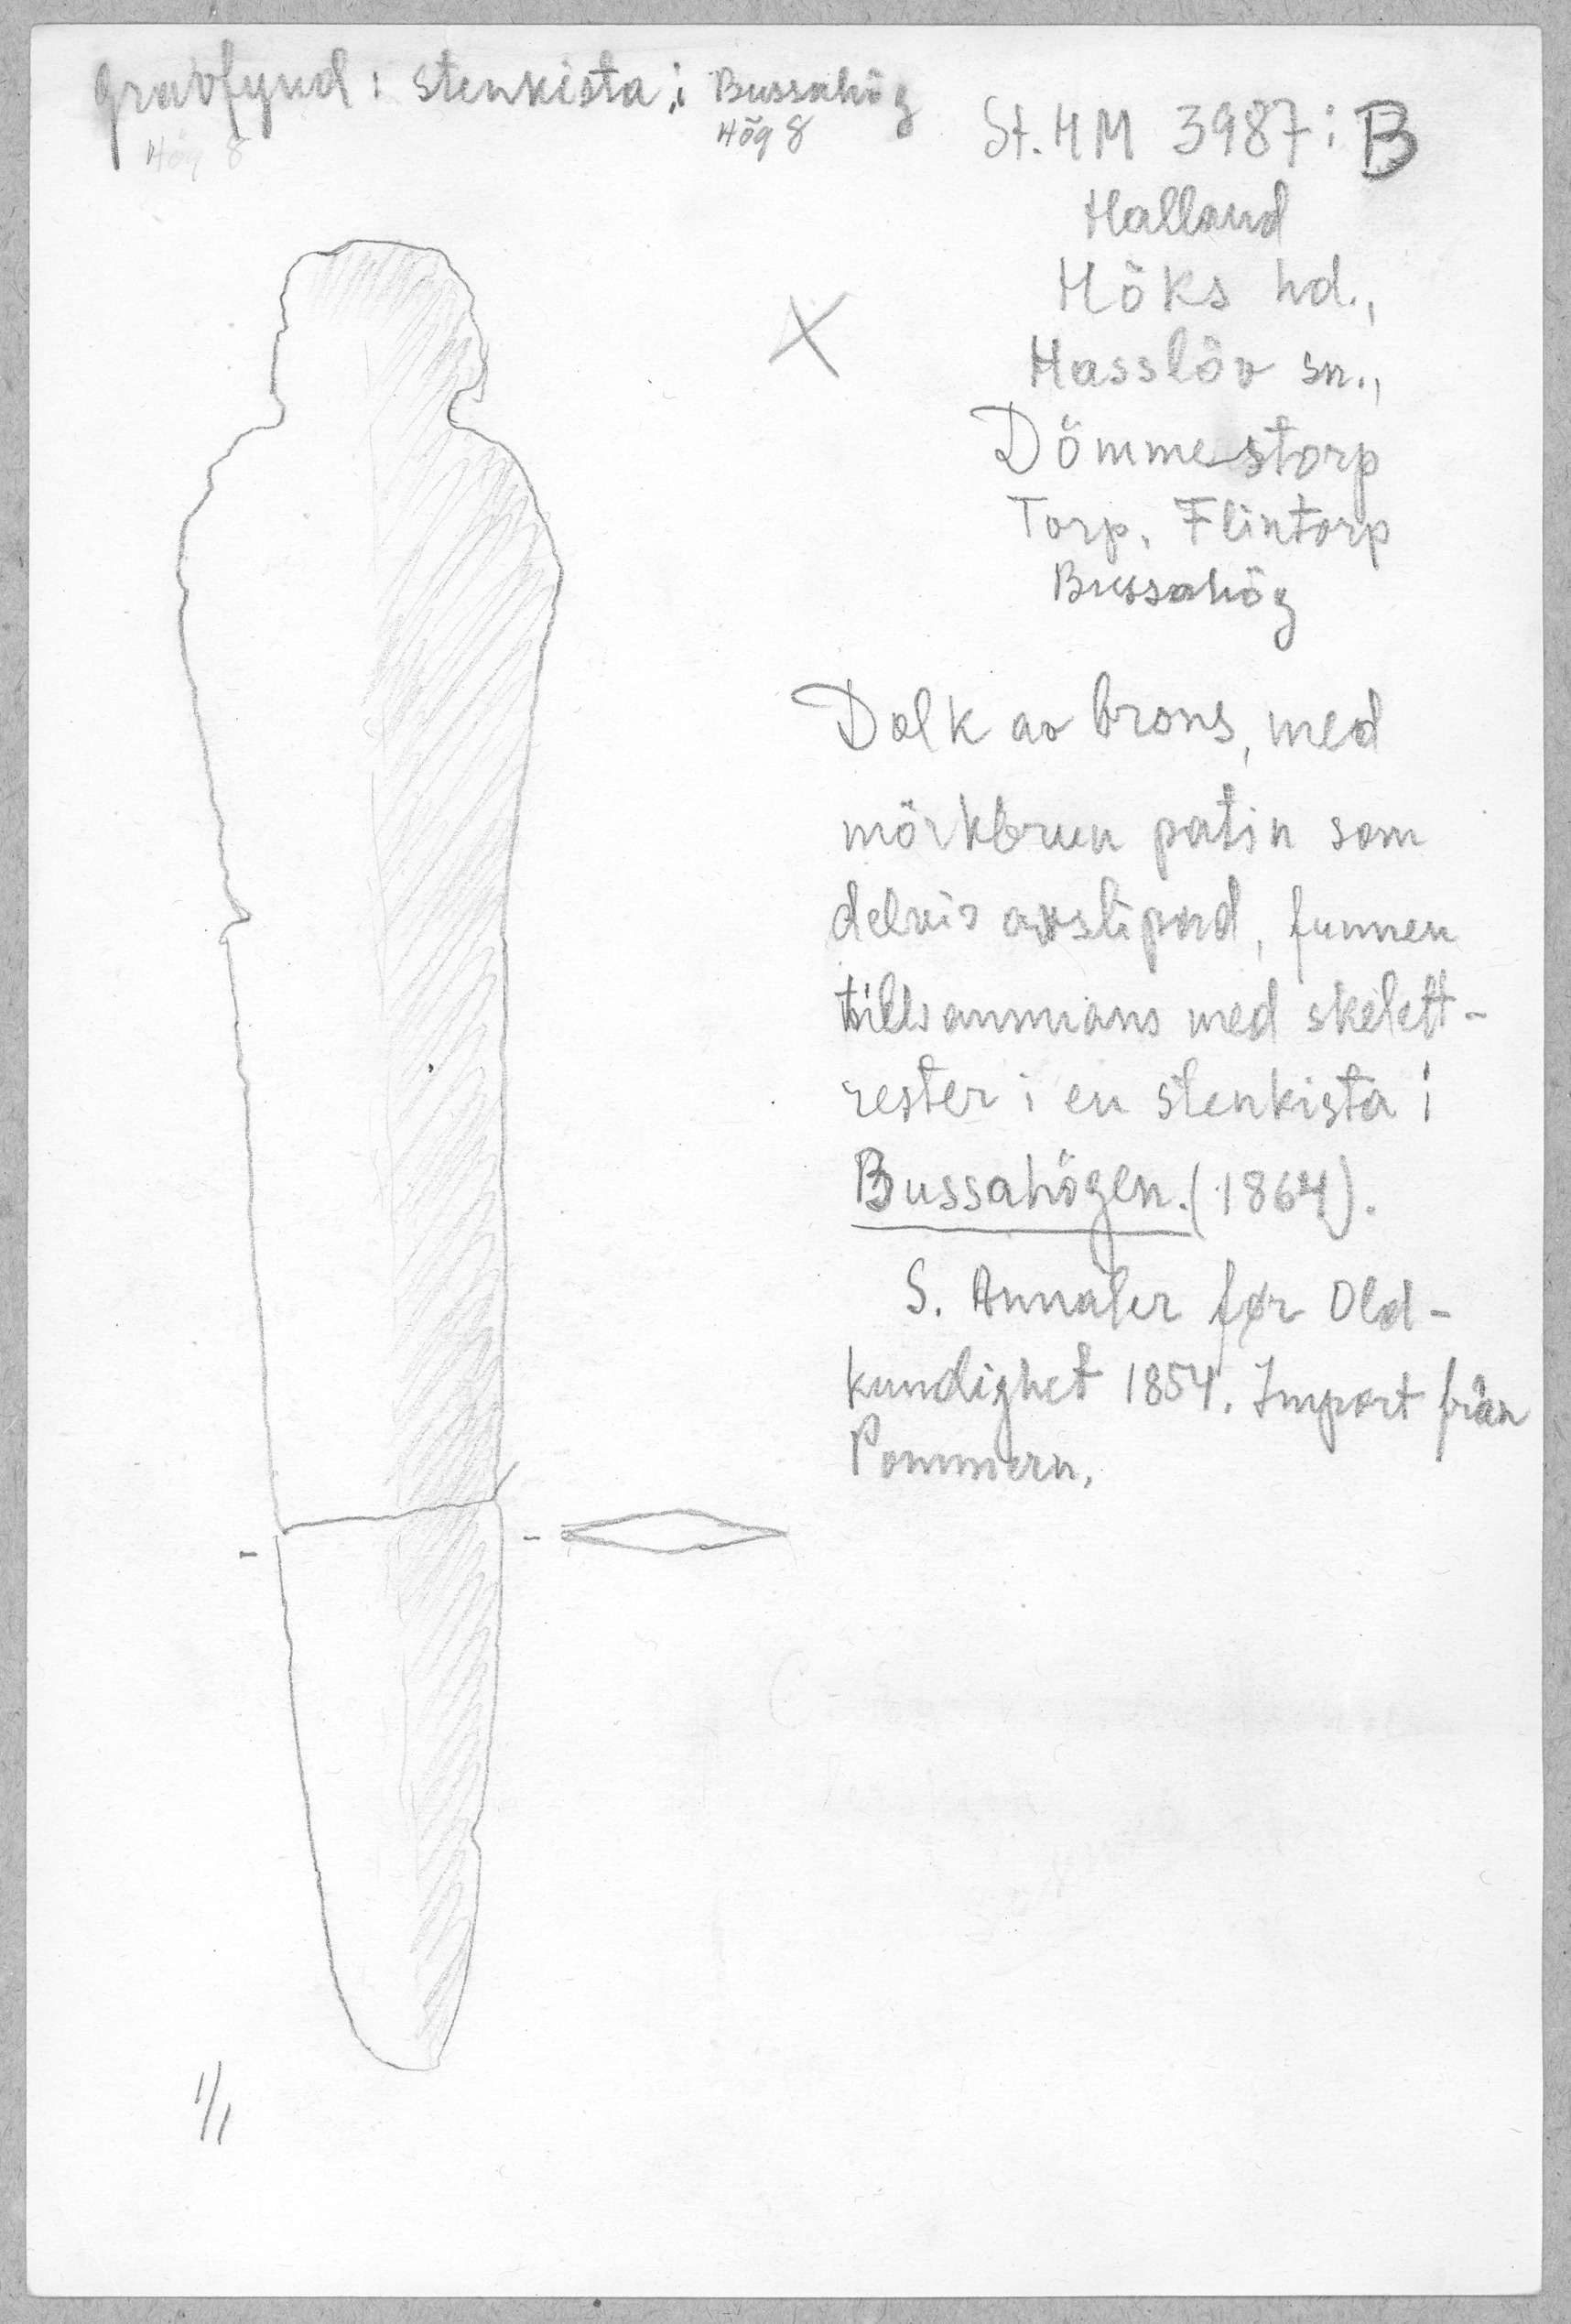 Gravfynd i stenkista i Bussahög
Hög 8
Hög 8
St. HM 3987: B
Halland
Höks hd.,
Hasslöv sn.,
Dömmestorp
Torp. Flintorp
Bussahög
Dolk av brons, med
mörkbrun patin som
delvis avslipad, funnen
tillsammans med skelett-
rester i en stenkista i
Bussahögen. (1864).
S. Annaler før Old-
kundighet 1854. Import från
Pommern.
1/1